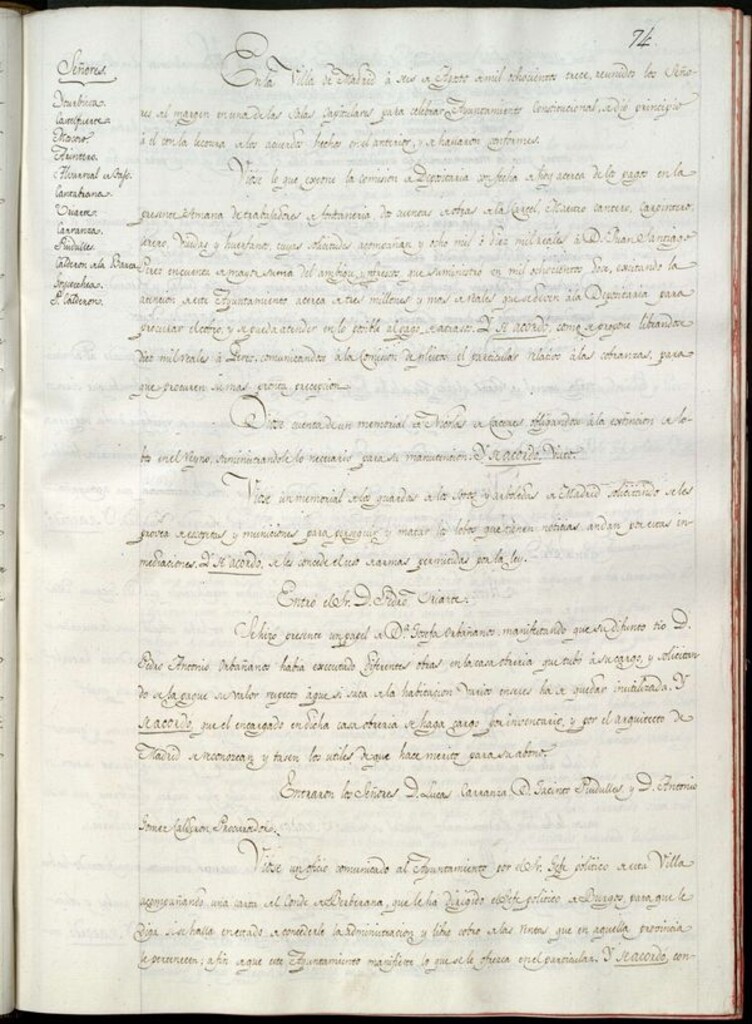 74.
Señores.
Yturbieta.
Castelfuerte.
Arintero.
Cantabrana.
Uriarte.
Carranza.
Piudulles.
Calderon de la Barca
Goycoechea.
S. Calderon.
En la Villa de Madrid á seis de Agosto de mil ochocientos trece, reunidos los Seño-
res al margen en una de las Salas Capitulares para celebrar Ayuntamiento Constitucional, se dió principio
á el con la lectura de los acuerdos hechos en el anterior, y se hallaron conformes.
Viose lo que expone la comision de Depositaria con fecha de hoy acerca de los pagos en la
presente semana de trabajadores de fontaneria, dos cuentas de obras de la Carcel, Maestro cantero, Carpintero,
Viudas y huerfanos, cuyas solicitudes acompañan, y ocho mil ó diez mil reales á D. Juan Santiago
Perez en cuenta de mayor suma del que suministró en mil ochocientos doce, excitando la
atencion de este Ayuntamiento acerca de tres millones y mas de reales que se deben á la Depositaria para
procurar el cobro, y se pueda atender en lo posible al pago de atrasos. Y se acordó, como se propone librandose
diez mil reales á Perez, comunicandose á la Comision de pleitos el particular relativo á las cobranzas, para
que procuren su mas pronta percepcion.
Diose cuenta de un memorial de Nicolas de Caceres obligandose á la extincion de lo-
bos en el Reyno, suministrandole lo necesario para su manutencion. Y se acordó: Visto.
Viose un memorial de los guardas de los Sotos y arboledas de Madrid solicitando se les
provea de escopetas y municiones para perseguir y matar los lobos que tienen noticias andan por estas in-
mediaciones. Y se acordó, se les concede el uso de armas permitidas por la ley.
Entró el Sr. D. Pedro Uriarte.
Se hizo presente un papel de Dª Josefa Orbañanos manifestando que su difunto tio D.
Pedro Antonio Orbañanos habia executado diferentes obras en la casa obreria que tubo á su cargo, y solicitan-
do se la pague su valor respecto á que si saca de la habitacion varios enseres ha de quedar inutilizada. Y
se acordó, que el encargado en dicha casa obreria se haga cargo por inventario, y por el arquitecto de
Madrid se reconozcan y tasen los utiles de que hace merito para su abono.
Entraron los Señores D. Lucas Carranza, D. Jacinto Piudulles, y D. Antonio
Gomez Calderon Procurador.
Viose un oficio comunicado al Ayuntamiento por el Sr. Gefe politico de esta Villa
acompañando una carta del Conde de Berberana, que le ha dirigido el Gefe politico de Burgos, para que le
diga si se halla en estado de concederle la administracion y libre cobro de las rentas, que en aquella provincia
le pertenecen; á fin de que este Ayuntamiento manifieste lo que se le ofrezca en el particular. Y se acordó, con-